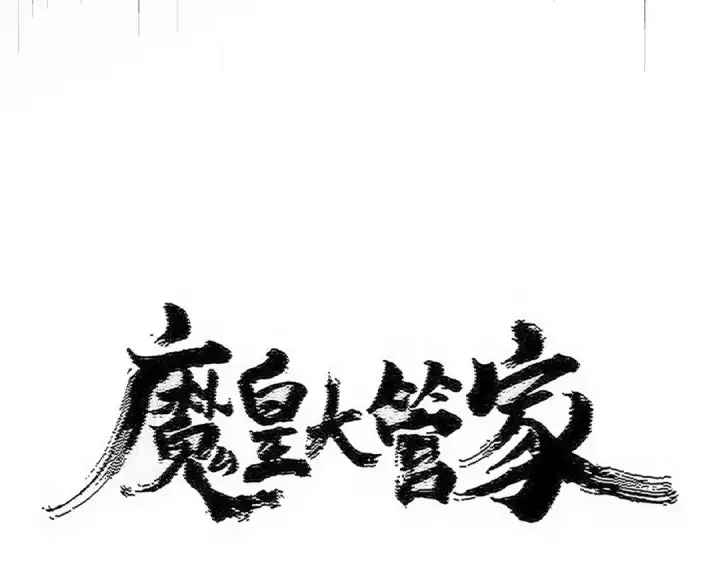 魔皇大管家